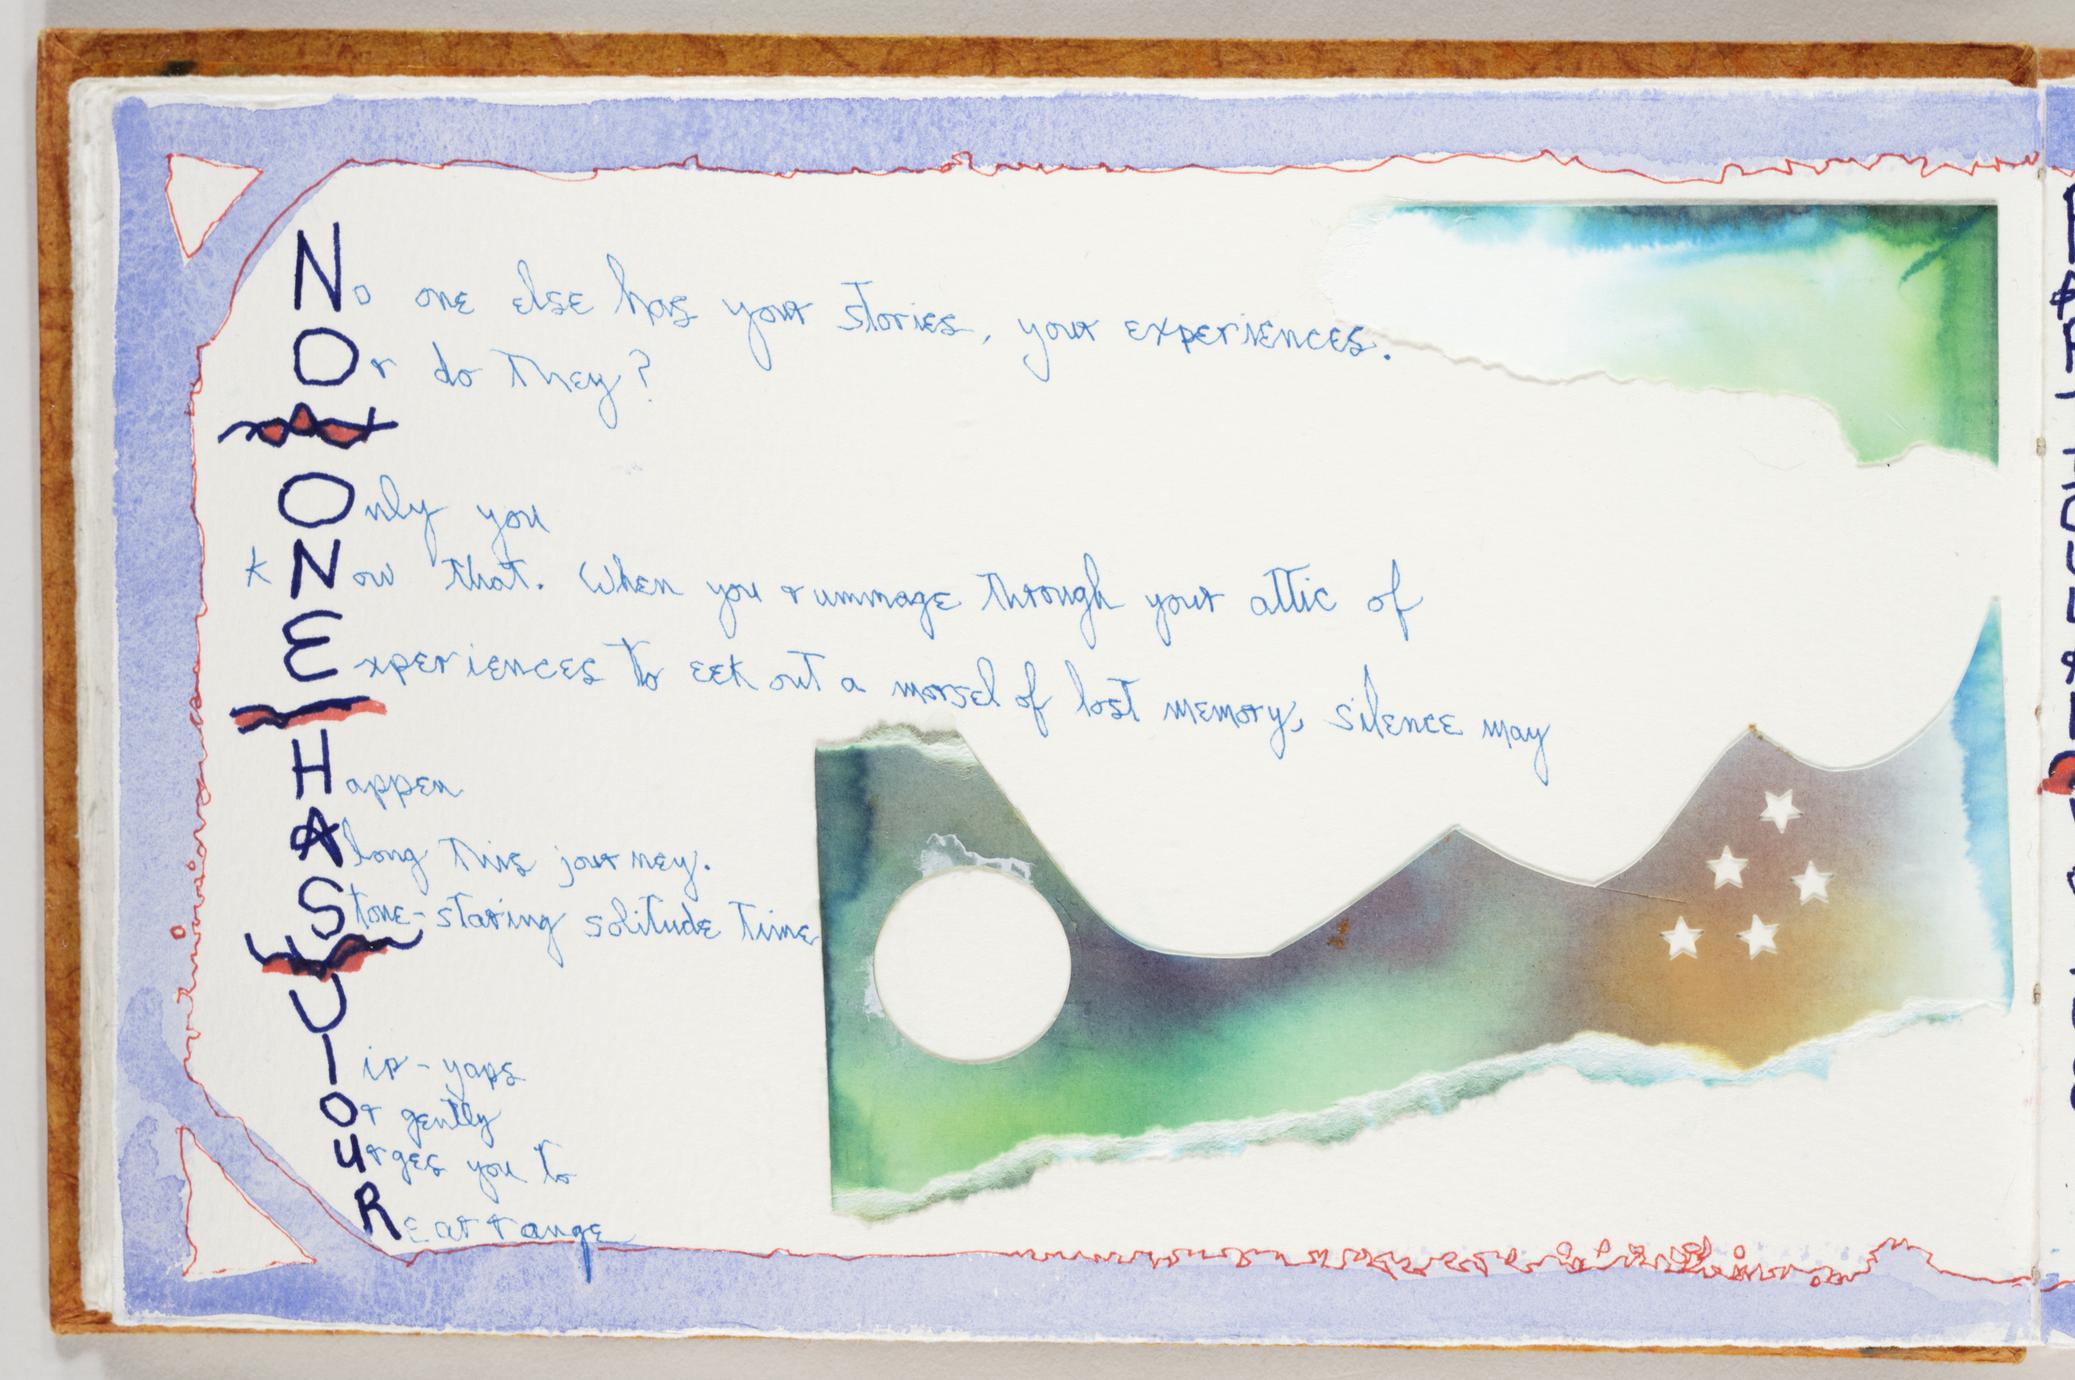 No one else has your stories, your experiences.
Or do they?
Only you
kNow that. When you rummage through your attic of
Experiences to eek out a morsel of lost memory, silence may
Happen
Along this journey.
Stone-staring solitude time
U
I ip-yaps
Or gently
Urges you to
Rearrange